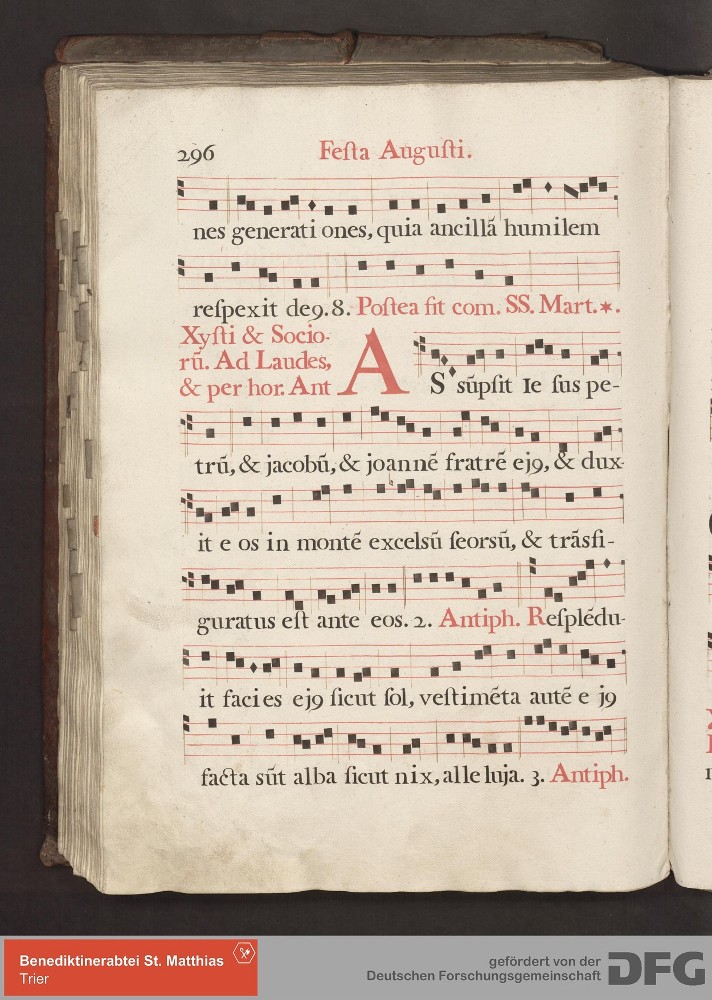 296 Feſta Auguſti.
nes generati ones, quia ancillā humilem
reſpexit de9. 8. Poſtea fit com. SS. Mart.*.
Xyſti & Socio-
rū. Ad Laudes,
& per hor. Ant
AS sūpſit Ie ſus pe-
trū, & jacobū, & joannē fratrē ej9, & dux-
it e os in montē excelsū ſeorsū, & trāsfi-
guratus eſt ante eos. 2. Antiph. Reſplēdu-
it facies ej9 ſicut ſol, veſtimēta autē e j9
facta sūt alba ſicut nix, alle luja. 3. Antiph.
Benediktinerabtei St. Matthias
Trier
gefördert von der
Deutschen Forschungsgemeinschaft DFG